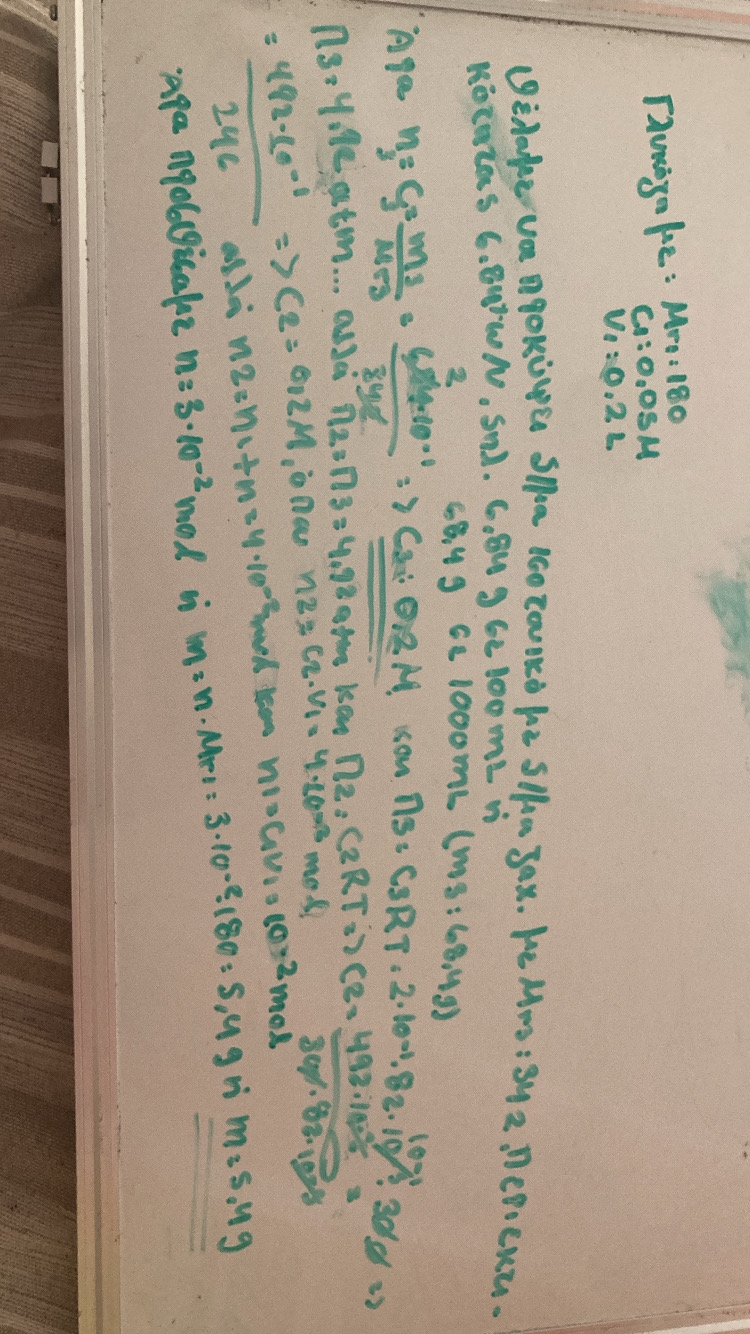 Γλυκόζη με: Mr1=180
C1=0,05M
V1=0.2L
Θέλουμε να προκύψει δ/μα ισοτονικό με δ/μα ζαχ. με Mr3=342, περιεκτι-
κότητας 6.84%w/v, δηλ. 6,84g σε 100mL ή
68,4g σε 1000mL (m3=68,4g)
Άρα n3=C3=m3/Mr3 = 684·10⁻¹/342 => C3=0,2M και Π3=C3RT=2·10⁻¹·82·10⁻³·300 =>
Π3=4.92atm... αλλά Π2=Π3=4,92atm και Π2=C2RT=>C2=492·10⁻²/300·82·10⁻³ =
=492·10⁻¹/246 => C2=0,2M, όπου n2=C2·V1=4·10⁻² mol
αλλά n2=n1+n=4·10⁻²mol και n1=C1V1=10⁻²mol
Άρα προσθέσαμε n=3·10⁻²mol ή m=n·Mr1=3·10⁻²·180=5,4g ή m=5,4g